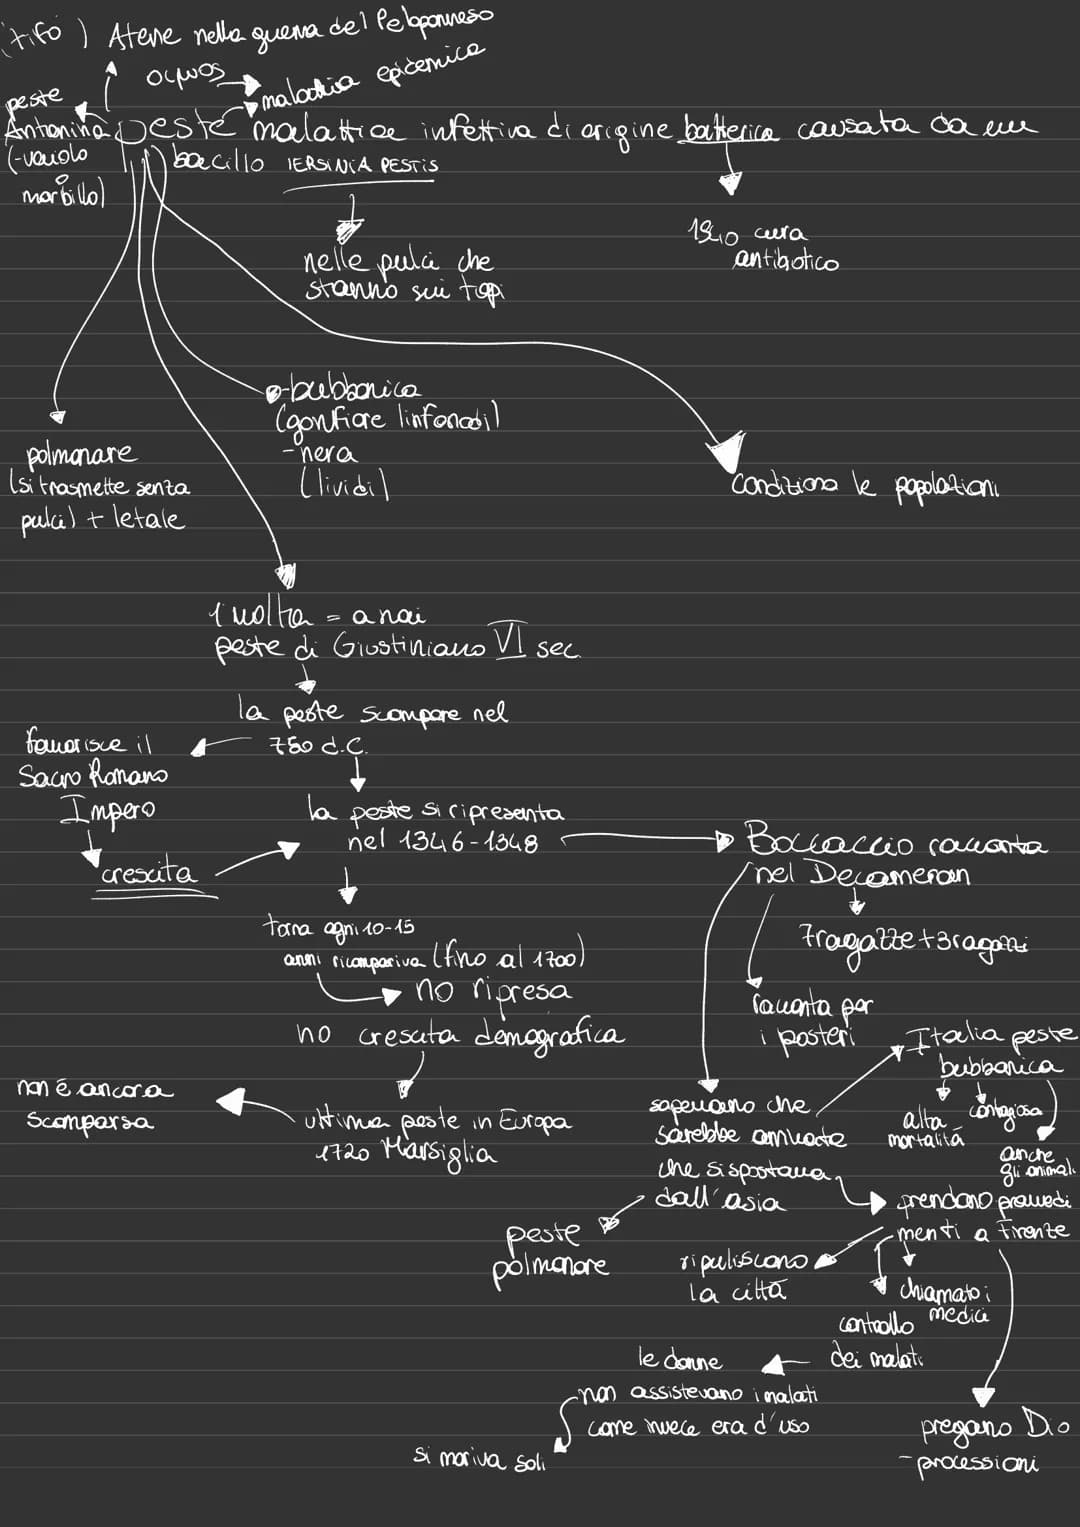 (tifo) Atene nella guerra del Peloponneso
malattia epidemica
peste
Antonina
(-vaiolo
o
morbillo)
peste malattia infettiva di origine batterica causata da un
bacillo IERSINIA PESTIS
nelle pulci che
stanno sui topi
cura
antibiotico
-bubbonica
(gonfiare linfonodi)
-nera
(lividi)
polmonare
(si trasmette senza
pulci) + letale
condiziona le popolazioni
1 volta =
peste di Giustiniano VI sec.
la peste scompare nel
750 d.C.
favorisce il
Sacro Romano
Impero
crescita
la peste si ripresenta
nel 1346-1348
Boccaccio racconta
nel Decameron
7ragazze+3ragazzi
racconta per
i posteri
torna ogni 10-15
anni ricompariva (fino al 1700)
no ripresa
no crescita demografica
ultima peste in Europa
1720 Marsiglia
non é ancora
scomparsa
sapevano che
sarebbe arrivata
che si spostava
dall'asia
peste
polmonare
Italia peste
bubbonica
alta
mortalitá
contagiosa
anche
gli animali
prendono provvedi
menti a Firenze
ripuliscono
la cittá
chiamato i
medici
controllo
dei malati
le donne
non assistevano i malati
come invece era d'uso
si moriva soli
pregano Dio
-processioni